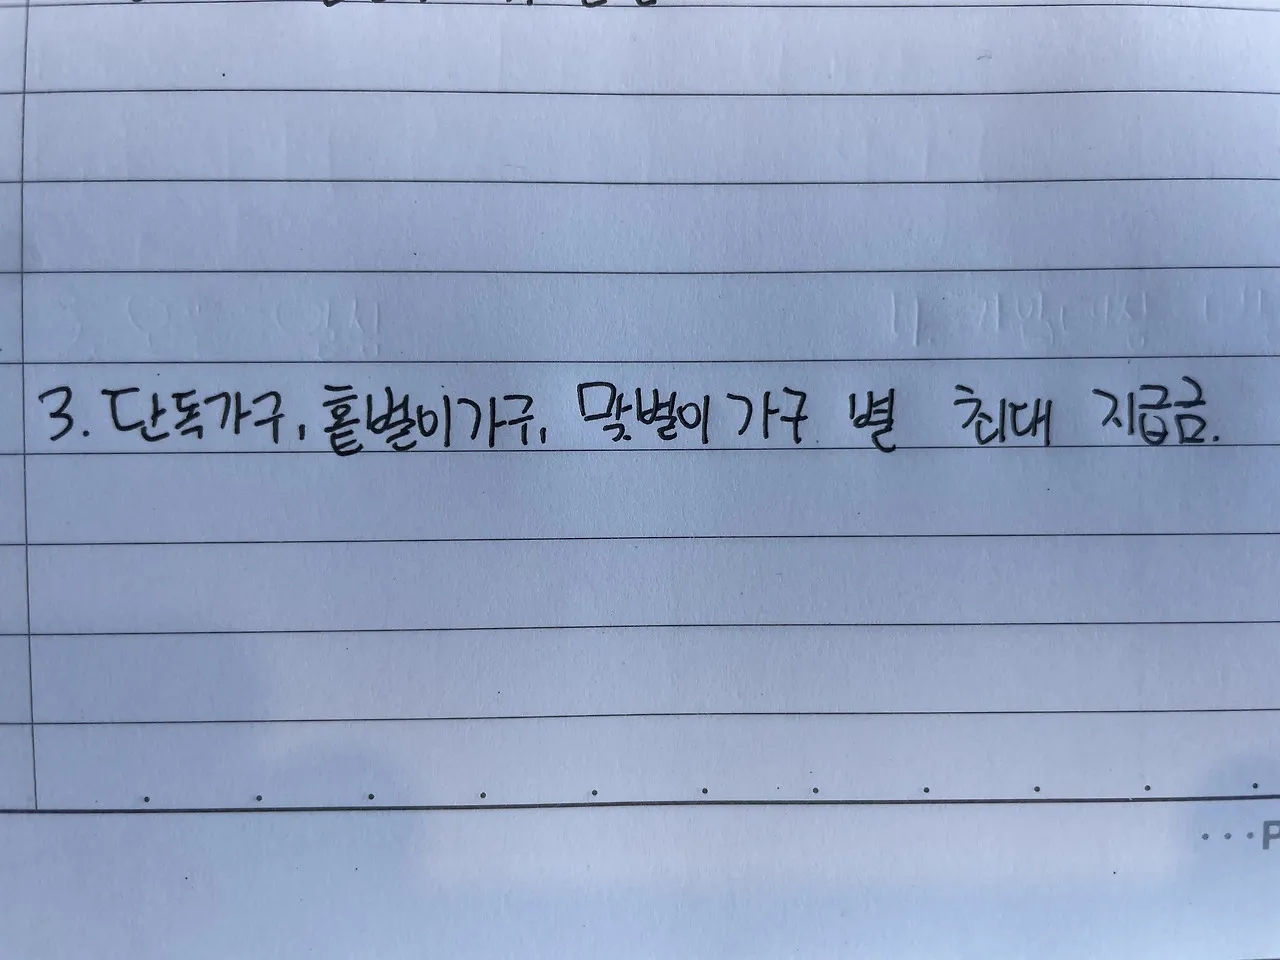 3. 단독가구, 홑벌이가구, 맞벌이 가구 별 최대 지급금.